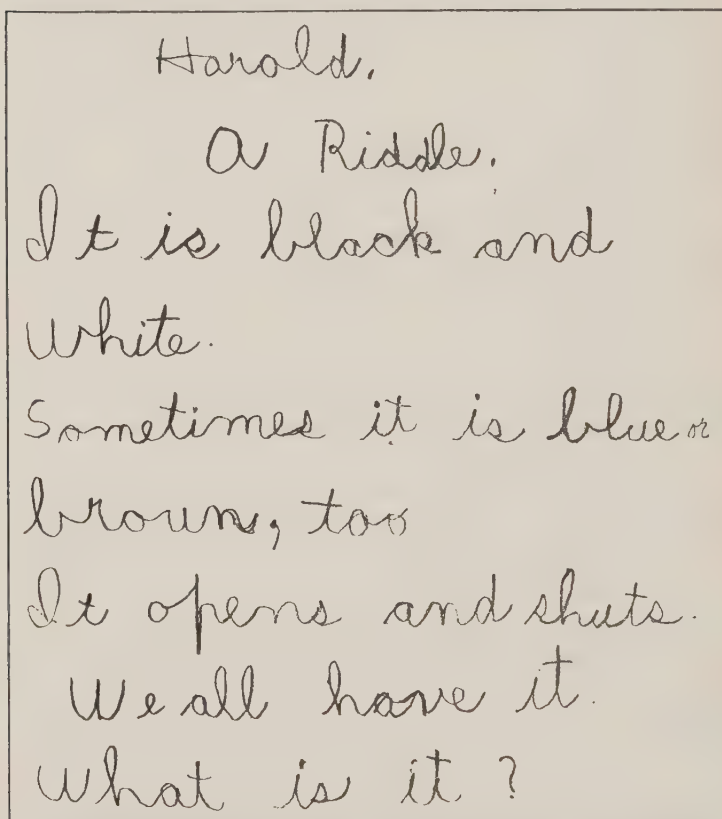 Harold.
A Riddle.
It is black and
white.
Sometimes it is blue or
broun, too
It opens and shuts.
We all have it.
What is it?